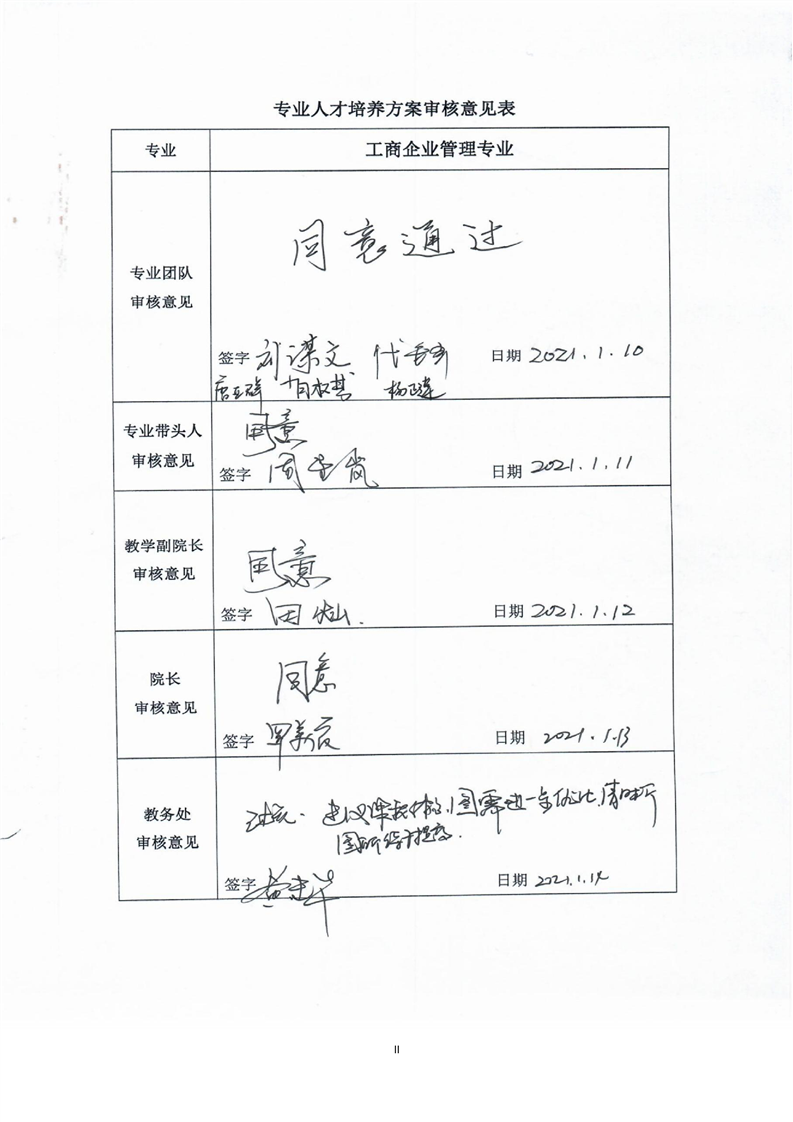 专业人才培养方案审核意见表
专业 工商企业管理专业
同意通过
专业团队
审核意见
签字 刘谋文 代 日期 2021.1.10
专业带头人 同意
审核意见
签字 周 岚 日期 2021.1.11
教学副院长
审核意见 同意
签字 田灿. 日期 2021.1.12
院长 同意
审核意见
签字 日期 2021.1.13
教务处
审核意见 建议 图需进一步优化,
签字 日期 2021.1.14
II